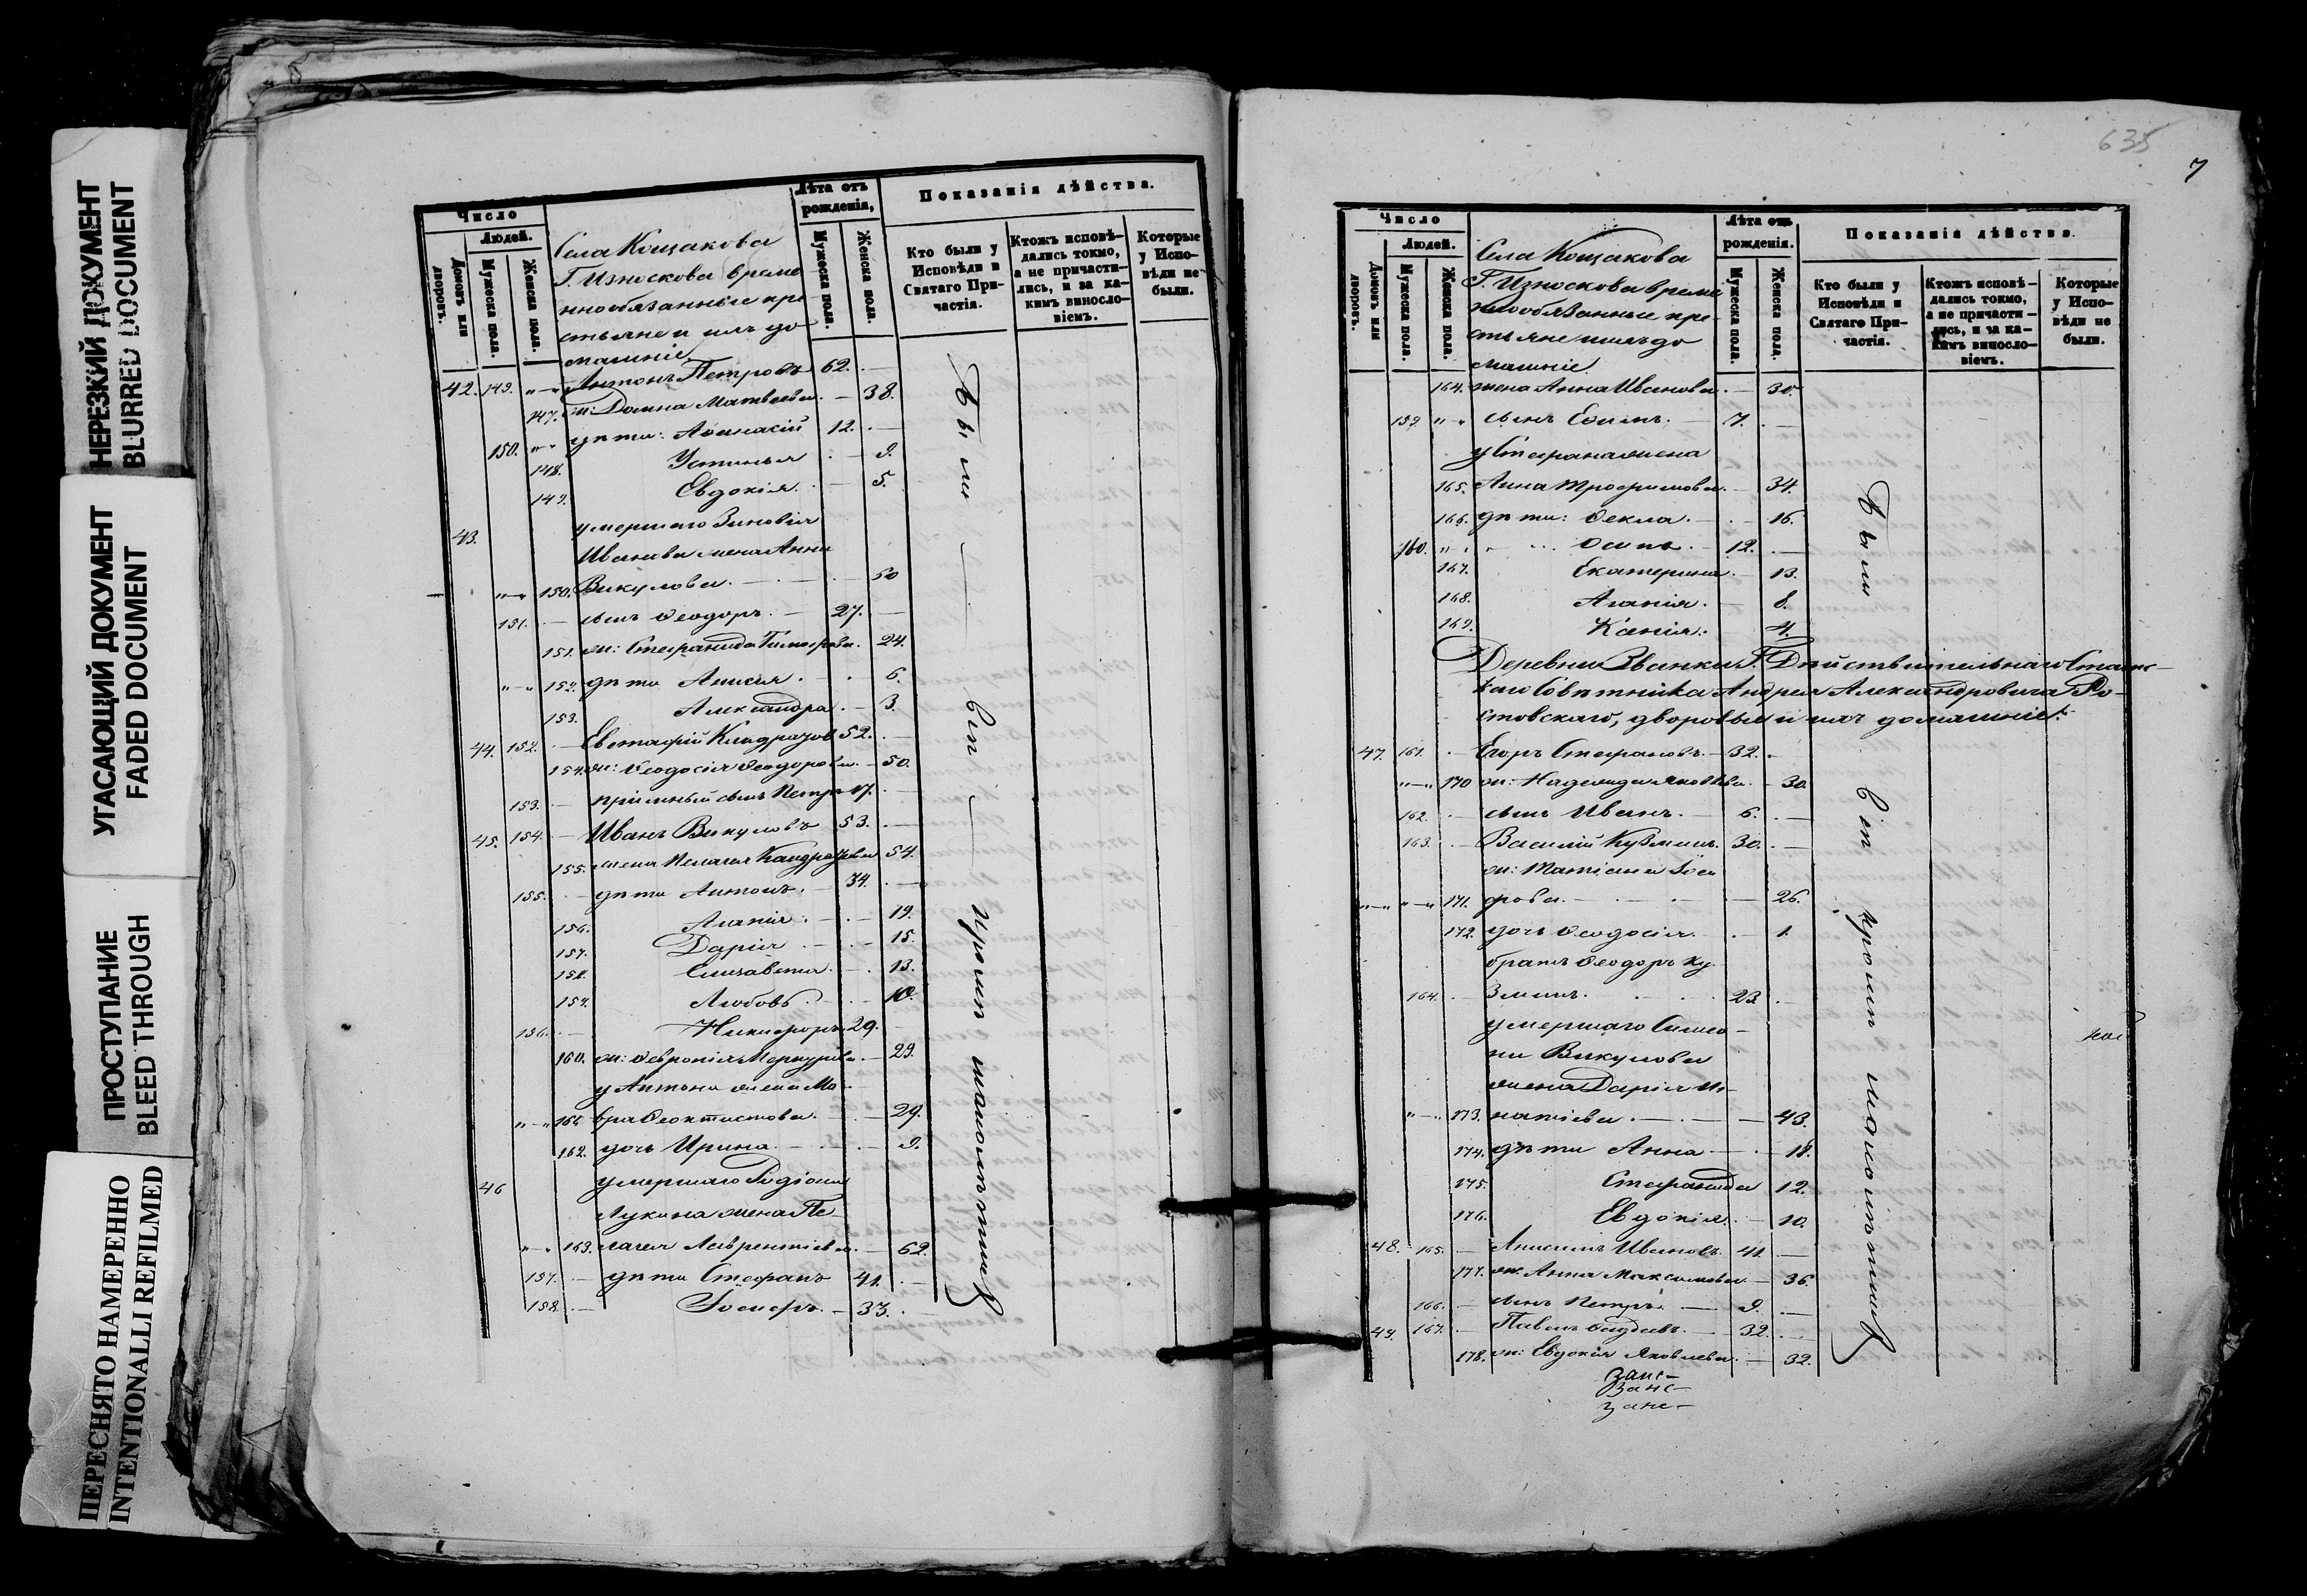 НЕРЕЗКИЙ ДОКУМЕНТ
BLURRED DOCUMENT
УГАСАЮЩИЙ ДОКУМЕНТ
FADED DOCUMENT
ПРОСТУПАНИЕ
BLEED THROUGH
ПЕРЕСНЯТО НАМЕРЕННО
INTENTIONALLI REFILMED
Число
Людей.
Домовъ или дворовъ.
Мужеска пола.
Женска пола.
Села Кощакова
Г. Износкова време
ннообязанные кре
стьяне и ихъ до
машніе
Лѣта отъ рожденія,
Мужеска пола.
Женска пола.
Показанія дѣйства.
Кто были у Исповѣди и Святаго Причастія.
Ктожъ исповѣдались токмо, а не причастились, и за какимъ винословіемъ.
Которые у Исповѣди не были.
42. 149. "—" Антонъ Петровъ 62. —
147. ж: Домна Матвеева. — 38.
150. "" дѣти: Аѳинасій 12. —
148. Устинья — 9.
149. Евдокія. — 5.
43. умершаго Зиновія
Иванова жена Анна
"—" 150. Викулова. — 50
151. — сынъ Ѳеодоръ. — 27. —
151. ж: Стефанида Тимофѣева. 24.
"—" 152. дѣти Анисія. — 6.
153. Александра. — 3.
44. 152. — Евстафій Кондратов 52. —
154. ж: Ѳеодосія Ѳеодорова. — 50.
153. — пріимный сынъ Петръ 17. —
45. 154. — Иванъ Викуловъ 53. —
155. жена Пелагея Кондратьева 54.
155. — дѣти Антонъ. — 34. —
156. Агапія. — 19.
157. Дарія — 15.
158. Елизавета. — 13.
159. Любовь. — 10.
156. — Никифоръ. 29. —
160. ж: Ѳевронія Меркурьева. — 29.
у Антона жена Ма
"—" 161. вра Ѳеоктистова. — 29.
162. дочь Ирина. — 9.
46 умершаго Родіона
Лукина жена Пе
"—" 163. лагея Лаврентіева. — 62.
157. — дѣти Стефанъ 41. —
158. — Іосифъ. — 33. —
Были
всѣ
кромѣ
малолѣтнихъ
635
7
Число
Людей.
Домовъ или дворовъ.
Мужеска пола.
Женска пола.
Села Кощакова
Г. Износкова време
ннообязанные кре-
стьяне и ихъ до
машніе.
Лѣта отъ рожденія.
Мужеска пола.
Женска пола.
Показанія дѣйства.
Кто были у Исповѣди и Святаго Причастія.
Ктожъ исповѣдались токмо, а не причастились, и за какимъ винословіемъ.
Которые у Исповѣди не были.
164. жена Анна Иванова. — 30.
159 "—" сынъ Ефимъ. — 7. —
у Стефана жена
165. Анна Трофимова. — 34.
166. дѣти: Ѳекла. — 16.
160. " Осипъ. — 12. —
167. Екатерина. — 13.
168. Агапія. — 8.
169. Ксенія. — 4.
Деревни Званки Г. Дѣйствительнаго Статс-
каго Совѣтника Андрея Александровича Ро-
стовскаго, дворовые и ихъ домашніе:
47. 161. — Егоръ Стефановъ. — 32. —
"—" 170 ж: Надежда Яковлева. — 30.
162. — сынъ Иванъ. — 6. —
163. — Василій Кузминъ. 30. —
ж: Татіана Іоси
"—" "—" 171. фова. — 26.
172. дочь Ѳеодосія. — 1.
братъ Ѳеодоръ Ку
164. — зминъ. 23. —
умершаго Симео-
на Викулова
жена Дарія Иг-
"—" 173. натіева. — 43.
174. дѣти Анна — 18.
175. Стефанида 12.
176. Евдокія. — 10.
48. 165. — Анисимъ Ивановъ. 41. —
177. ж: Анна Максимова — 36.
166. — сынъ Петръ. — 9. —
49. 167. — Павелъ — 32. —
178. ж: Евдокія Яковлева. — 32.
Были
всѣ
кромѣ
малолѣтнихъ